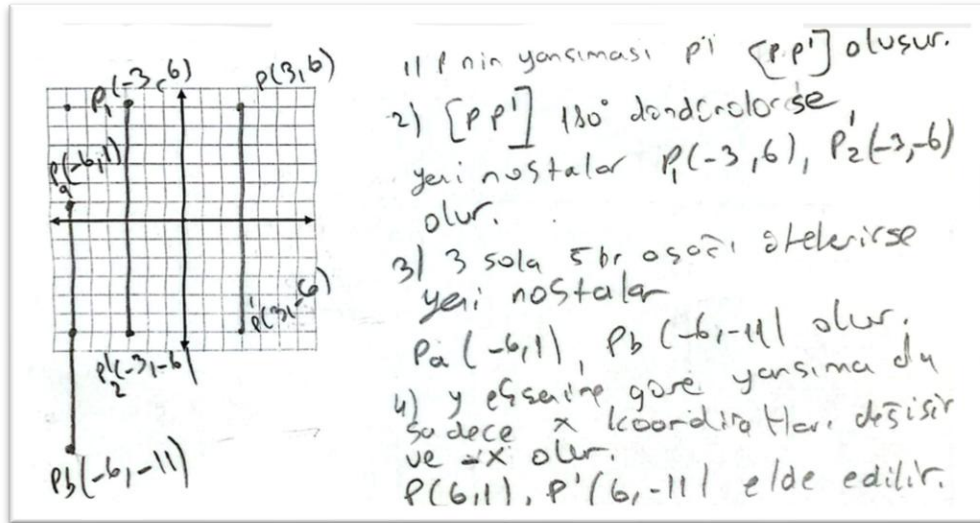 P₁(-3,6)
P(3,6)
Pa(-6,1)
P'(3,-6)
P'₂(-3,-6)
Pb(-6,-11)
1) P nin yansıması P' [PP'] oluşur.
2) [PP'] 180° döndürülürse
yeni noktalar P₁(-3,6), P'₂(-3,-6)
olur.
3) 3 sola 5 br aşağı ötelenirse
yeni noktalar
Pa(-6,1), Pb(-6,-11) olur.
4) y eksenine göre yansıma da
sadece x koordinatları değişir
ve -x olur.
P(6,1), P'(6,-11) elde edilir.